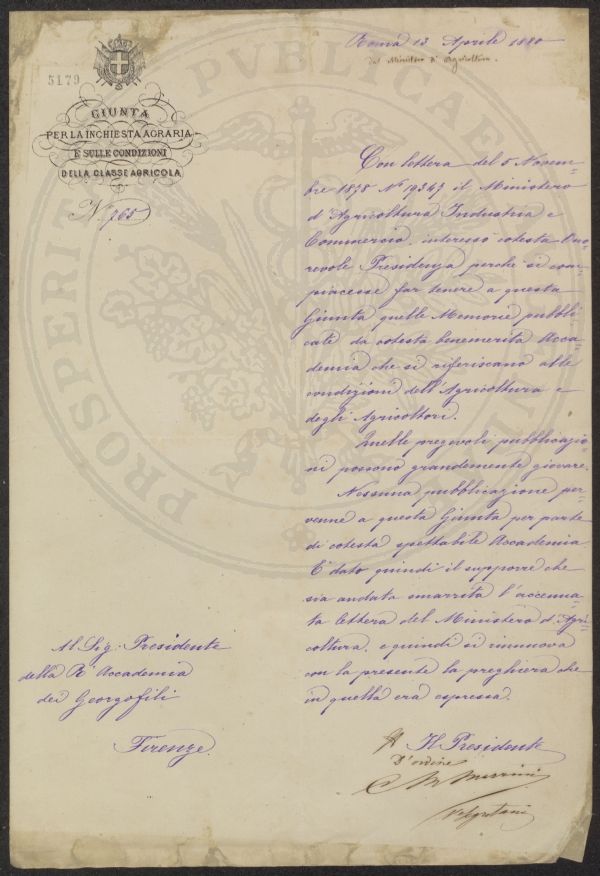 5179
GIUNTA
PER LA INCHIESTA AGRARIA
E SULLE CONDIZIONI
DELLA CLASSE AGRICOLA
N° 765
Roma 13 Aprile 1880
dal Ministero d'Agricoltura.
Con lettera del 5 Novem=
bre 1878 N° 19247 il Ministero
d'Agricoltura Industria e
Commercio, interessò cotesta Ono=
revole Presidenza perchè si com=
piacesse far tenere a questa
Giunta quelle Memorie pubbli=
cate da cotesta benemerita Acca=
demia che si riferiscano alle
condizioni dell'Agricoltura e
degli Agricoltori.
Quelle pregevoli pubblicazio=
ni possono grandemente giovare.
Nessuna pubblicazione per=
venne a questa Giunta per parte
di cotesta spettabile Accademia.
E' dato quindi il supporre che
sia andata smarrita l'accenna=
ta lettera del Ministero d'Agri=
coltura, e quindi si rinnuova
con la presente la preghiera che
in quella era espressa.
Il Presidente
D'ordine
Al Sig. Presidente
della R. Accademia
dei Georgofili
Firenze.
PROSPERITATI PUBLICAE